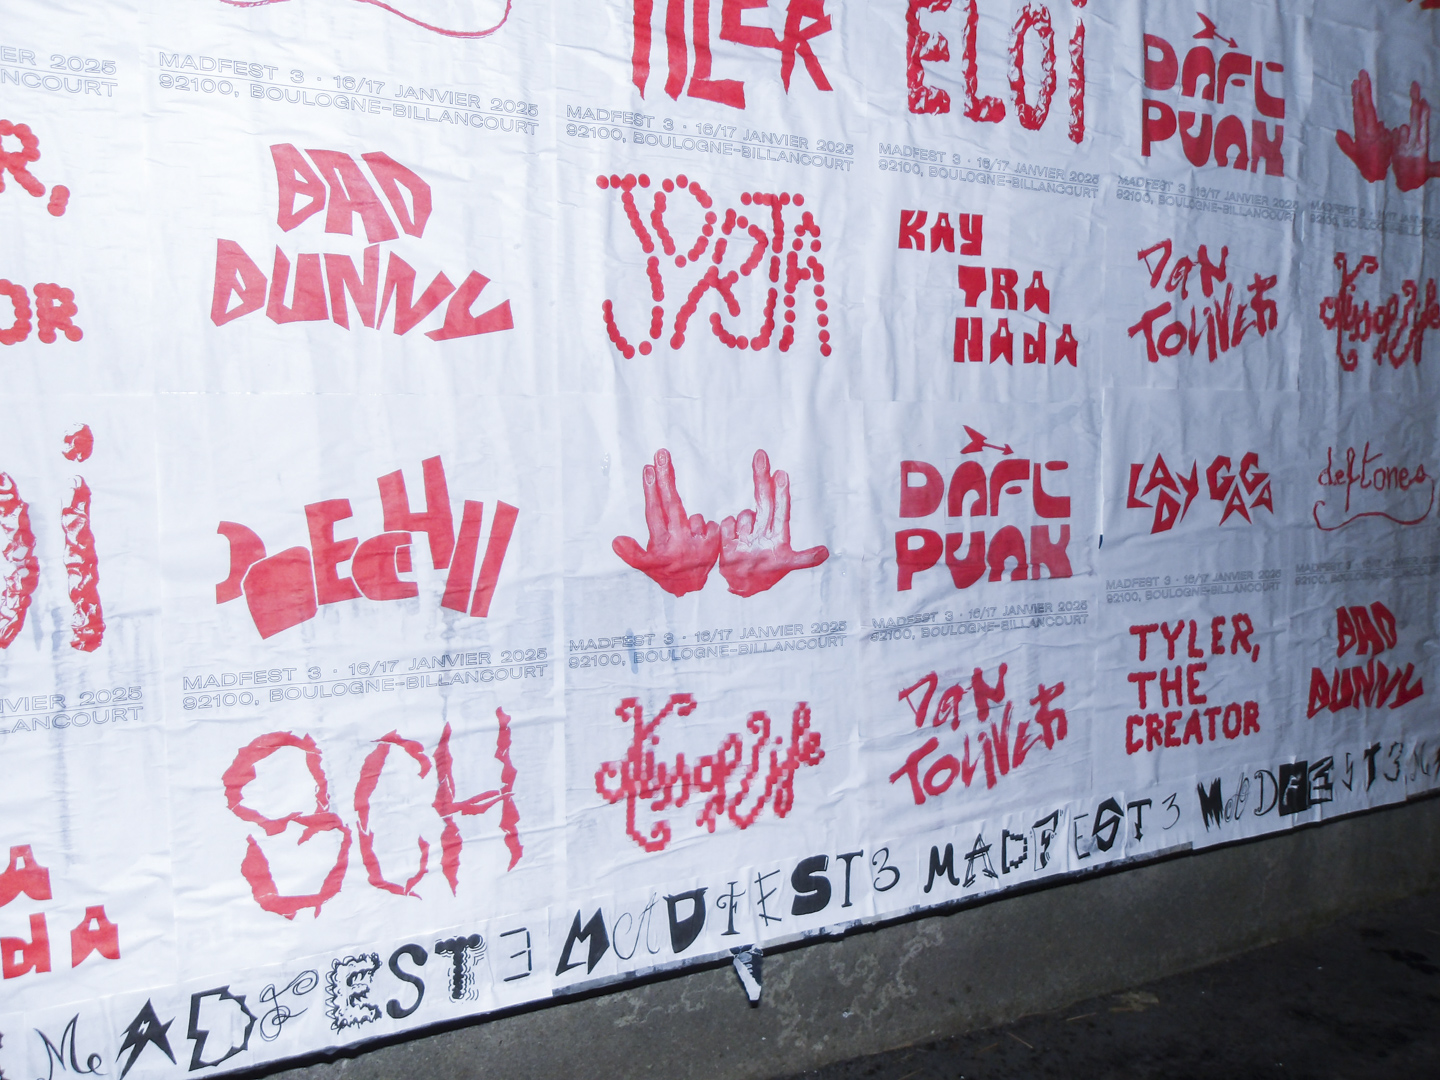 ER 2025
NCOURT
MADFEST 3 · 16/17 JANVIER 2025
92100, BOULOGNE-BILLANCOURT
TLER
MADFEST 3 · 16/17 JANVIER 2025
92100, BOULOGNE-BILLANCOURT
ELOI
MADFEST 3 · 16/17 JANVIER 2025
92100, BOULOGNE-BILLANCOURT
DAFt
PUNK
MADFEST 3 · 16/17 JANVIER 2025
92100, BOULOGNE-BILLANCOURT
R,
OR
BAD
BUNNY
JORJA
KAY
TRA
NADA
DON
TOLIVER
VIER 2025
LANCOURT
DOECHII
MADFEST 3 · 16/17 JANVIER 2025
92100, BOULOGNE-BILLANCOURT
MADFEST 3 · 16/17 JANVIER 2025
92100, BOULOGNE-BILLANCOURT
DAFt
PUNK
MADFEST 3 · 16/17 JANVIER 2025
92100, BOULOGNE-BILLANCOURT
LADY GAGA
MADFEST 3 · 16/17 JANVIER 2025
92100, BOULOGNE-BILLANCOURT
deftones
A
dA
SCH
DON
TOLIVER
TYLER,
THE
CREATOR
BAD
BUNNY
MADFEST 3 MADFEST 3 MADFEST 3 MADFEST 3